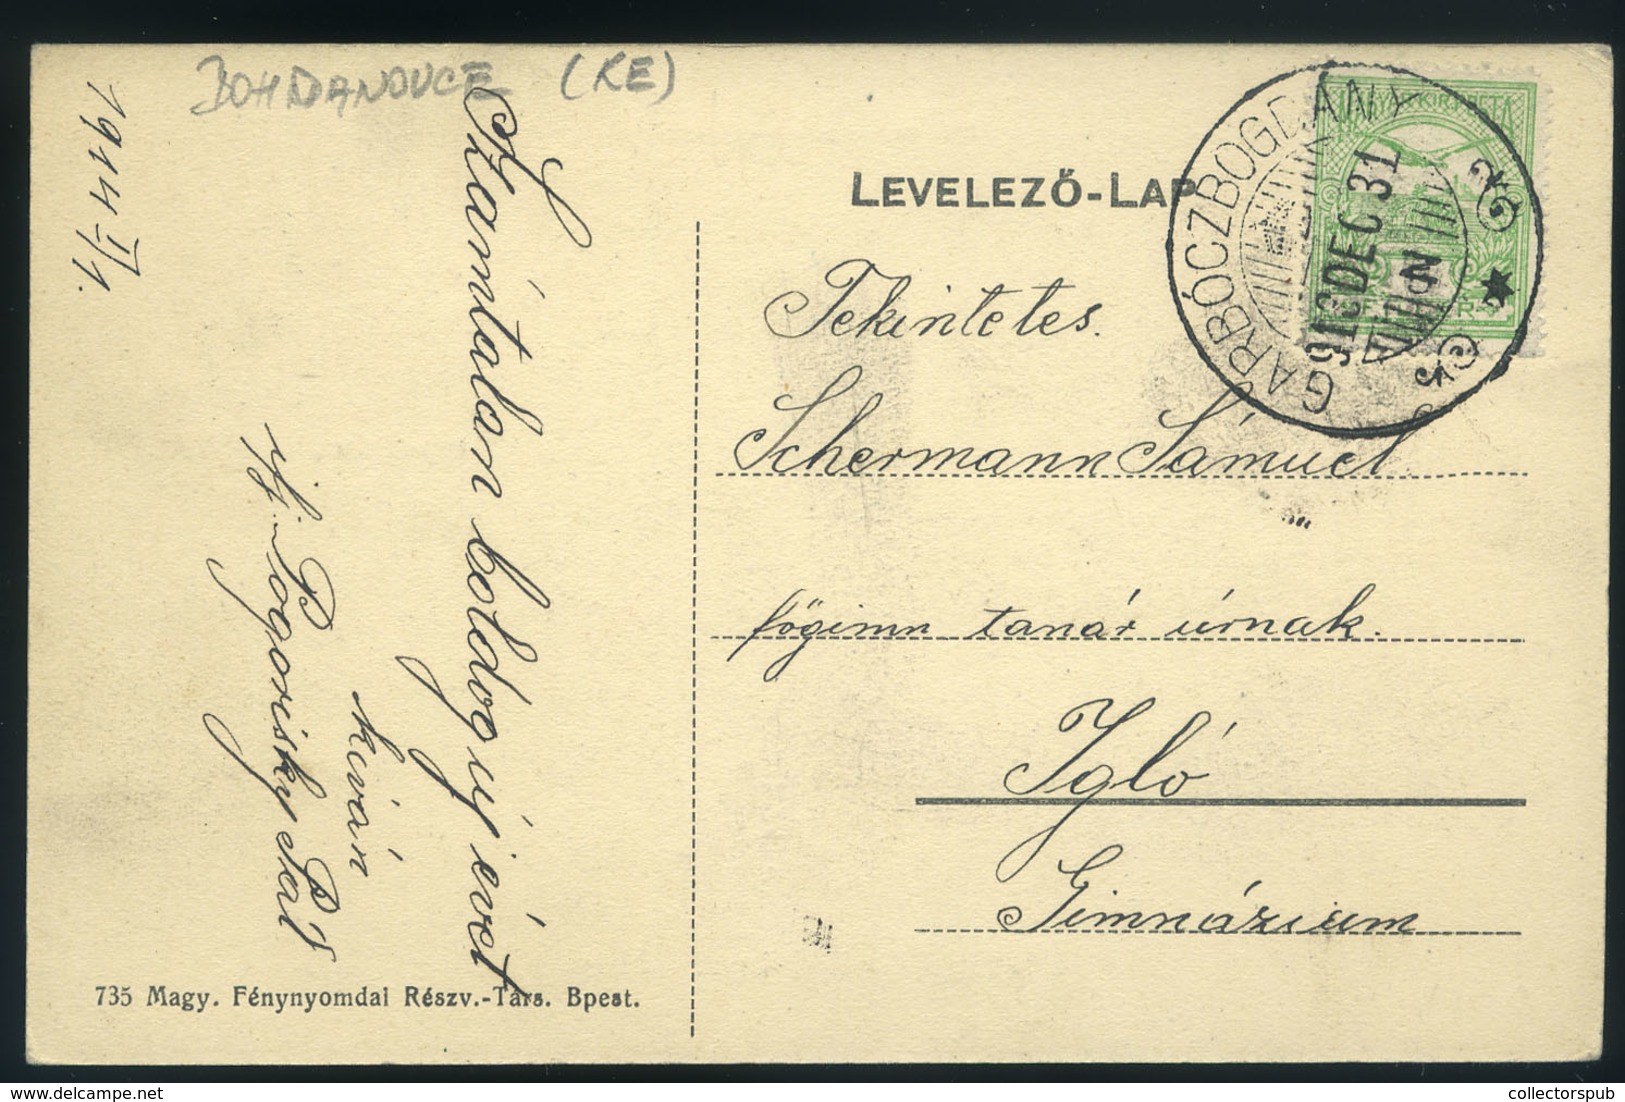 BOHDANOVCE (KE)
1914 I/1.
Számtalan boldog új évet
kíván
ifj. Pogorisky Pál
735 Magy. Fénynyomdai Részv.-Társ. Bpest.
LEVELEZŐ-LAP
GARBÓCZBOGDÁNY
913 DEC 31
Tekintetes.
Schermann Sámuel
főgimn tanár úrnak.
Igló
Gimnázium
collectorspub